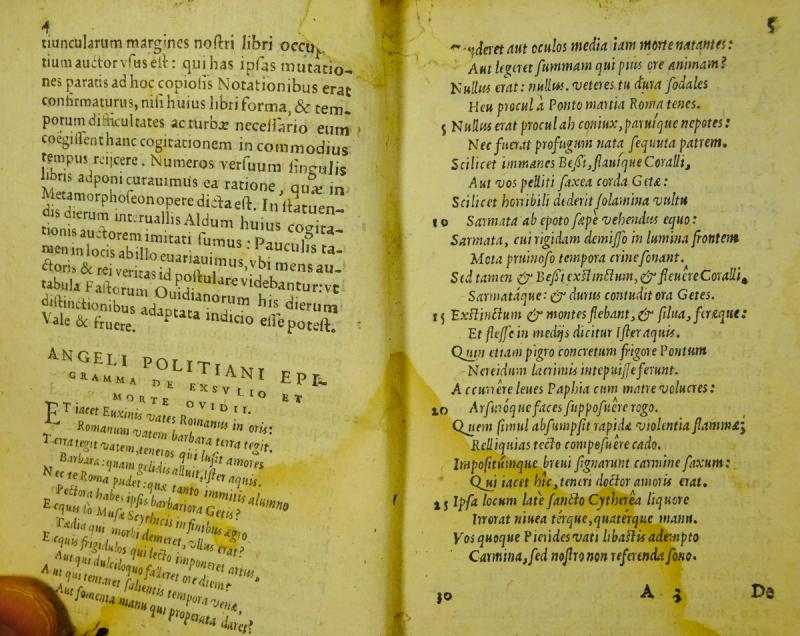 4
tiuncularum margines nostri libri occup
tium auctor vsus est: qui has ipsas mutatio-
nes paratis ad hoc copiosis Notationibus erat
confirmaturus, nisi huius libri forma, & tem-
porum difficultates ac turbæ necessario eum
coëgissent hanc cogitationem in commodius
tempus reijcere. Numeros versuum singulis
libris adponi curauimus ea ratione, quæ in
Metamorphoseon opere dicta est. In statuen-
dis dierum interuallis Aldum huius cogita-
tionis auctorem imitati sumus: Pauculis ta-
men in locis ab illo euariauimus, vbi mens au-
ctoris & rei veritas id postulare videbantur: vt
tabula Fastorum Ouidianorum his dierum
distinctionibus adaptata indicio esse potest.
Vale & fruere.
ANGELI POLITIANI EPI-
GRAMMA DE EXSVLIO ET
MORTE OVIDII.
ET iacet Euxinis vates Romanus in oris:
Romanum vatem barbara terra tegit.
Terra tegit vatem, teneros qui lusit amores
Barbara: quam gelidis alluit, Ister aquis.
Nec te Roma pudet: quæ tanto immitis alumno
Pectora habes ipsis barbariora Getis?
Ecquis io Musæ Scythicis in finibus ægro
Tædia qui morbi demeret, vllus erat?
Ecquis frigidulos qui lecto imponeret artus,
Aut qui dulciloquo falleret ore diem?
Aut qui tentaret salientis tempora venæ,
Aut fomenta manu qui properata daret?
5
deret aut oculos media iam morte natantes:
Aut legeret summam qui pius ore animam?
Nullus erat: nullus. veteres tu dura sodales
Heu procul à Ponto martia Roma tenes.
5 Nullus erat procul ah coniux, paruíque nepotes:
Nec fuerat profugum nata sequuta patrem.
Scilicet immanes Bessi, flauíque Coralli,
Aut vos pelliti saxea corda Getæ:
Scilicet horribili dederit solamina vultu
10 Sarmata ab epoto sæpe vehendus equo:
Sarmata, cui rigidam demisso in lumina frontem
Mota pruinoso tempora crine sonant.
Sed tamen & Bessi exstinctum, & fleuêre Coralli,
Sarmatáque: & durus contudit ora Getes.
15 Exstinctum & montes flebant, & siluæ, feræque:
Et flesse in medijs dicitur Ister aquis.
Quin etiam pigro concretum frigore Pontum
Nereidum lacrimis intepuisse ferunt.
Accurrêre leues Paphia cum matre volucres:
20 Arsuróque faces supposuêre rogo.
Quem simul absumpsit rapidæ violentia flammæ;
Relliquias tecto composuêre cado.
Impositúmque breui signarunt carmine saxum:
Qui iacet hîc, teneri doctor amoris erat.
25 Ipsa locum late sancto Cytherêa liquore
Irrorat niuea térque, quatérque manu.
Vos quoque Pierides vati libastis adempto
Carmina, sed nostro non referenda sono.
30 A 3 De